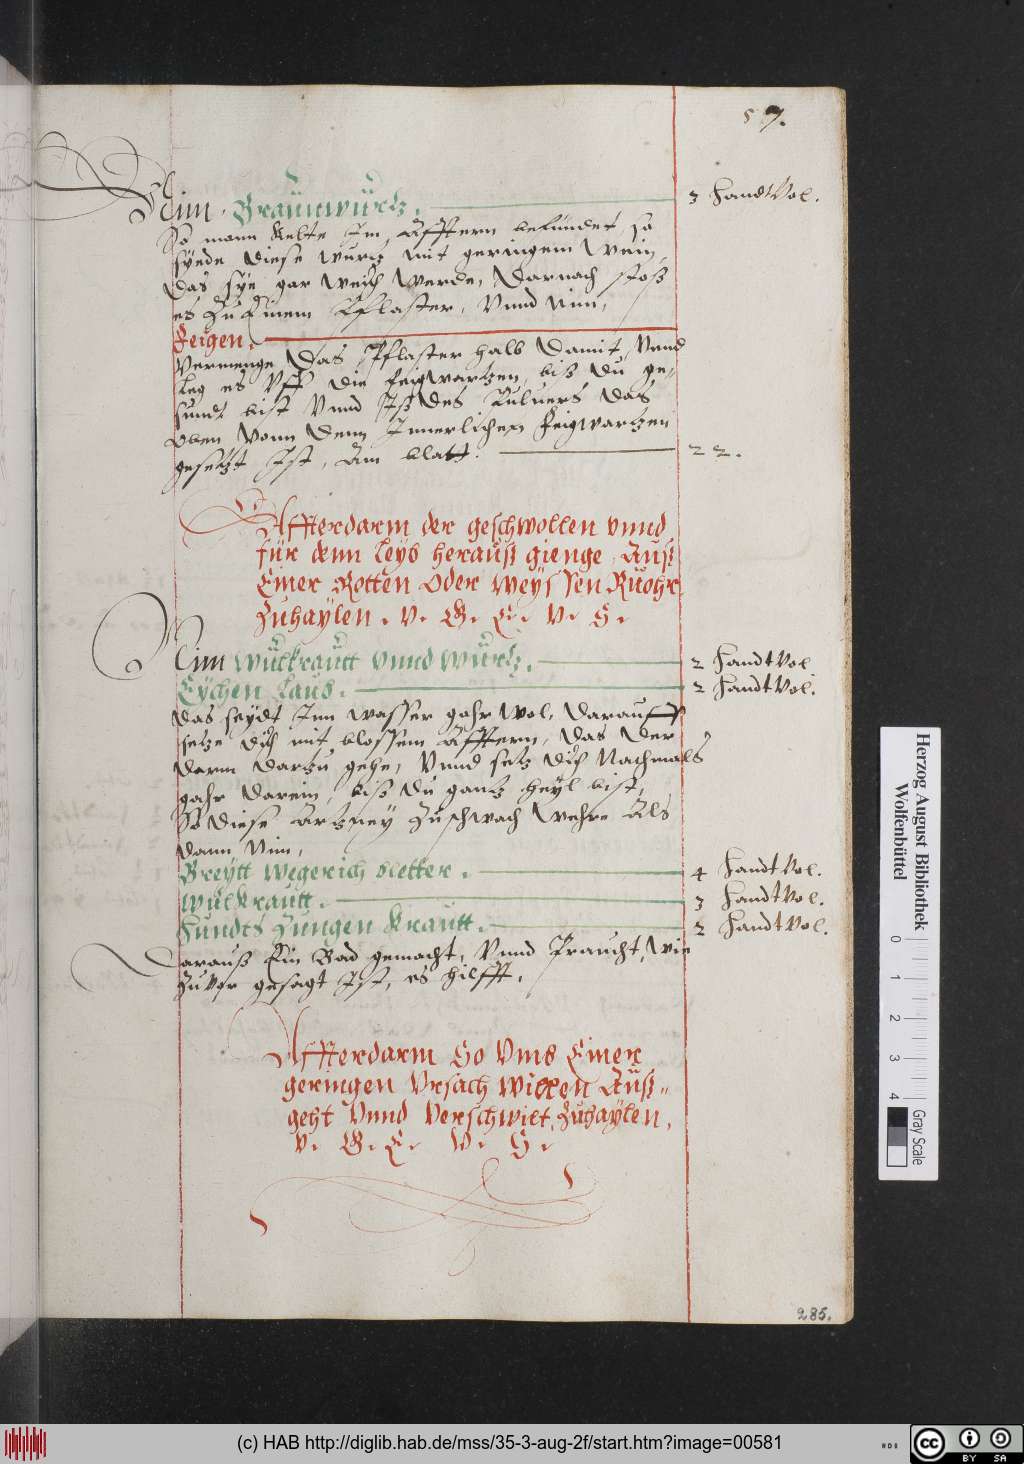 57.
Nim Braünwürtz. 3 HandtVol.
So mann Kelte Im Äfftern befündet, so
syede diese wurtz mit geringem wein,
das sye gar weich werde, Darnach stoß
es zu Einem Pflaster, Vnnd Nim,
Feigen.
Vermenge Das Pflaster halb Damit, Vnnd
leg es Vff die feigwartzen, biß du ge,
sundt bist Vnnd Iß des Puluers das
Oben Vonn Denn Innerlichen Feigwartzen
gesetzt Ist, Am blatt. 22.
Affterdarm der geschwollen vnnd
für denn leyb herauß gienge, Auß
Einer Rotten Oder weyssen Ruohr
Zuhaylen. V. G. E. V. S.
Nim wulkrautt vnnd würtz. 2 HandtVol
Eychen laub. 2 HandtVol.
das seydt Inn wasser gahr wol, darauff
setze dich mit blossem Äfftern, das der
darm dartzu gehe, Vnnd setz dich Nachmals
gahr darein, biß du gantz heyl bist,
So diese artzney Zuschwach wehre Als
dann Nim,
Breytt wegerich bletter. 4 HandtVol.
wulkrautt. 3 HandtVol.
Hundts Zungen krautt. 2 HandtVol.
Darauß Ein Bad gemacht, Vnnd Praucht, wie
zuVor gesagt Ist, es hilfft.
Affterdarm So Vmb Einer
geringen Vrsach willen Auß„
geht Vnnd Verschwilt, Zuhaylen,
V. G. E. V. S.
285.
Herzog August Bibliothek
Wolfenbüttel
0 1 2 3 4
Gray Scale
(c) HAB http://diglib.hab.de/mss/35-3-aug-2f/start.htm?image=00581
cc BY SA